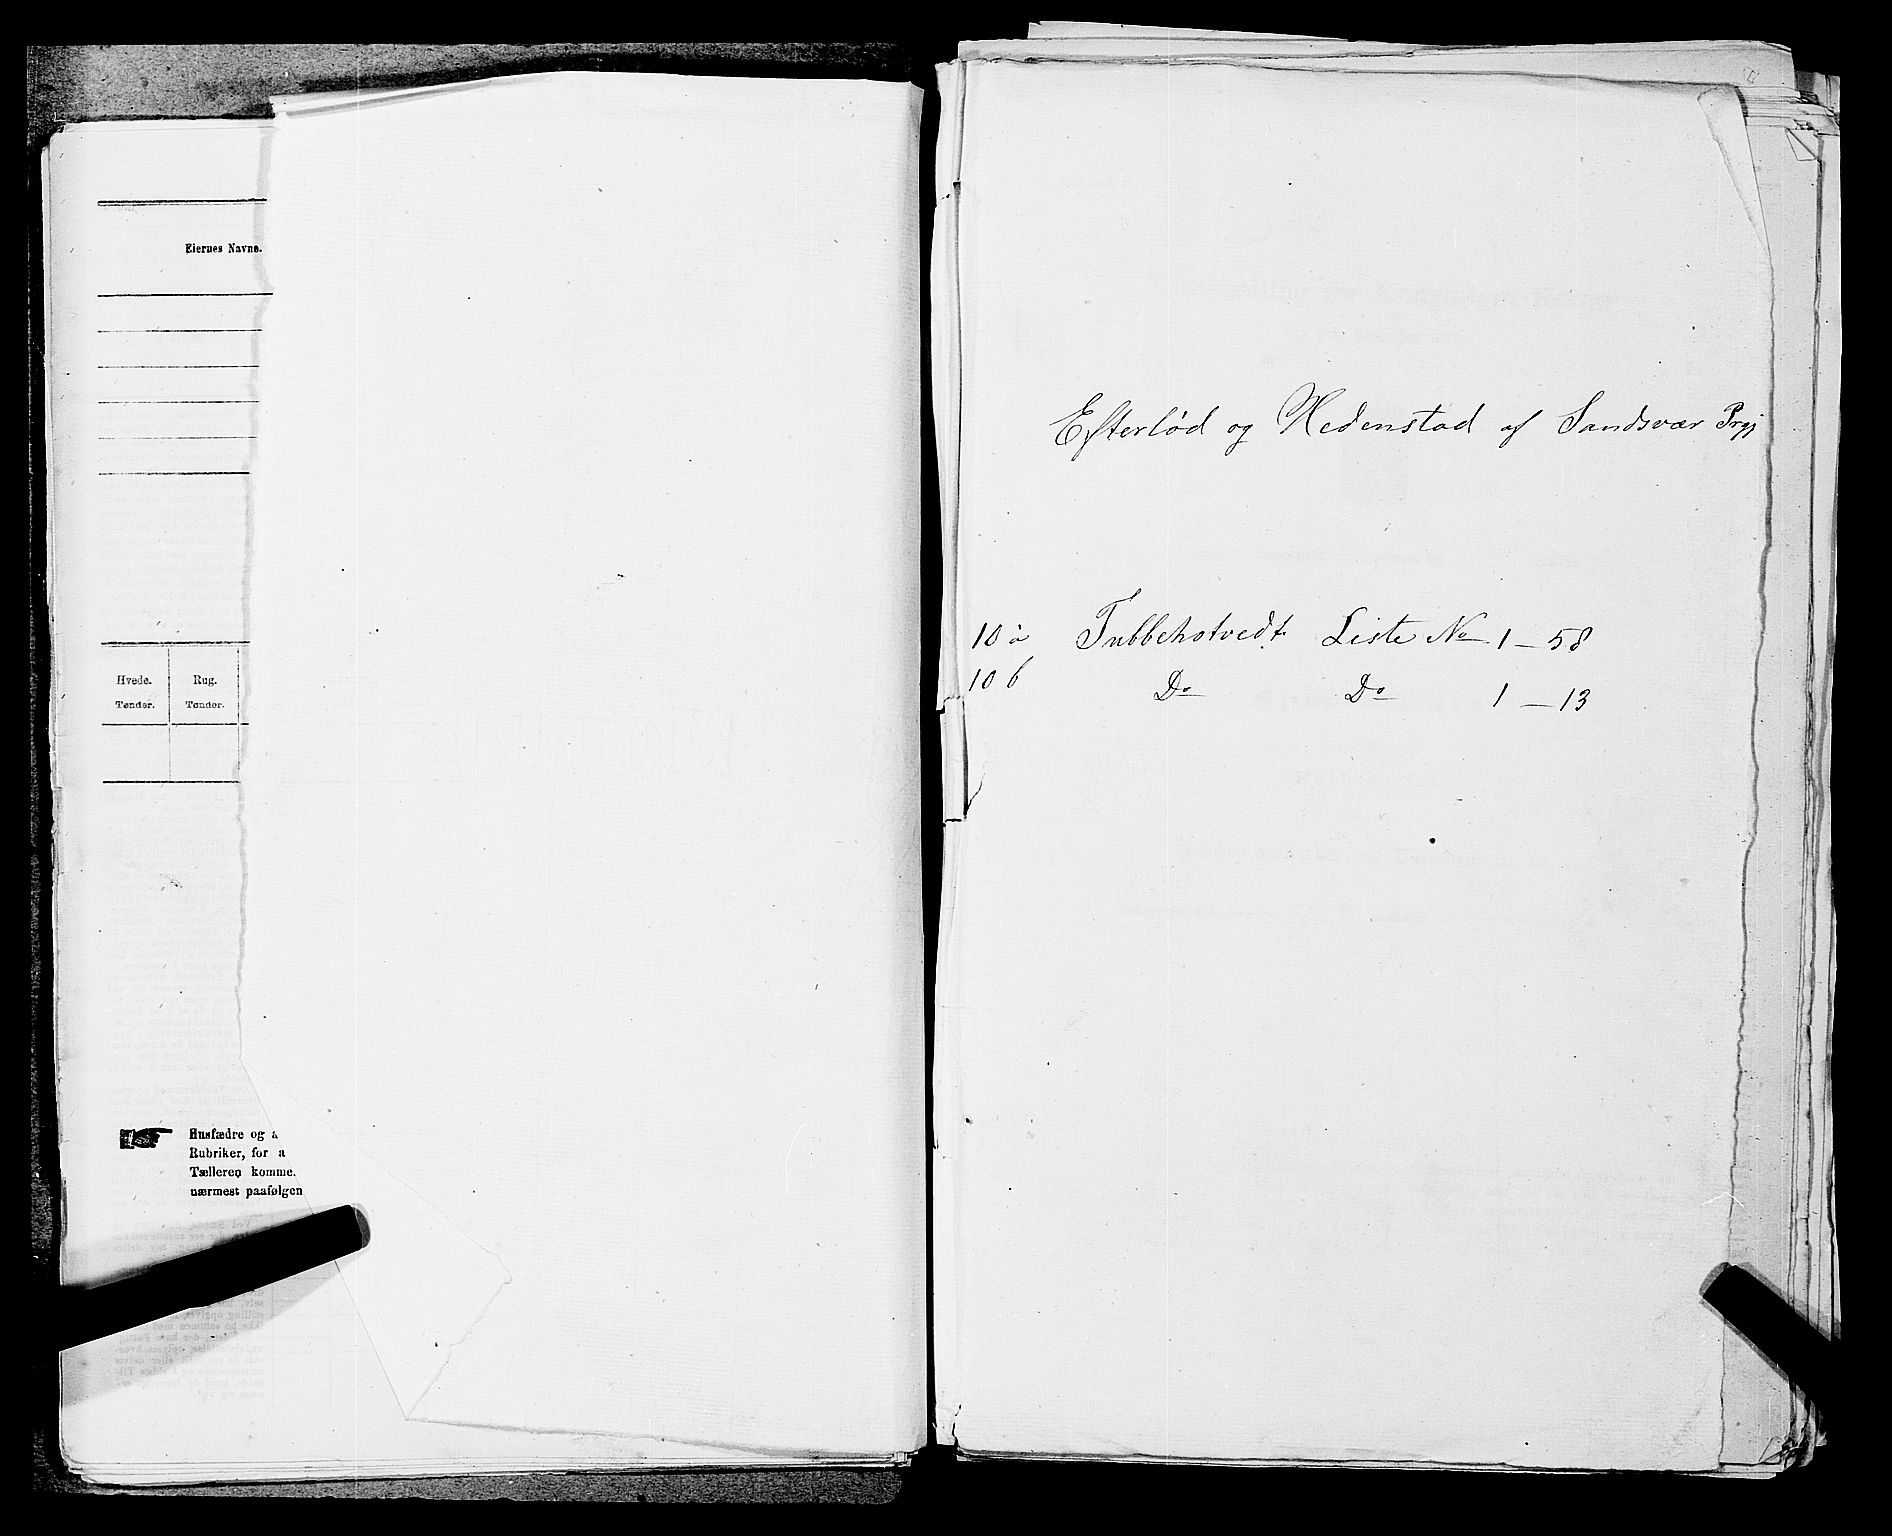 Eiernes Navne.
Hvede. Rug.
Tønder. Tønder.
Husfædre og a
Rubriker, for a
Tælleren komme.
nærmest paafølgen
Efterlød og Hedenstad af Sandsvær Prgj
10 a Tubbehotvedt. Liste No 1 — 58
10 b Do Do 1 — 13